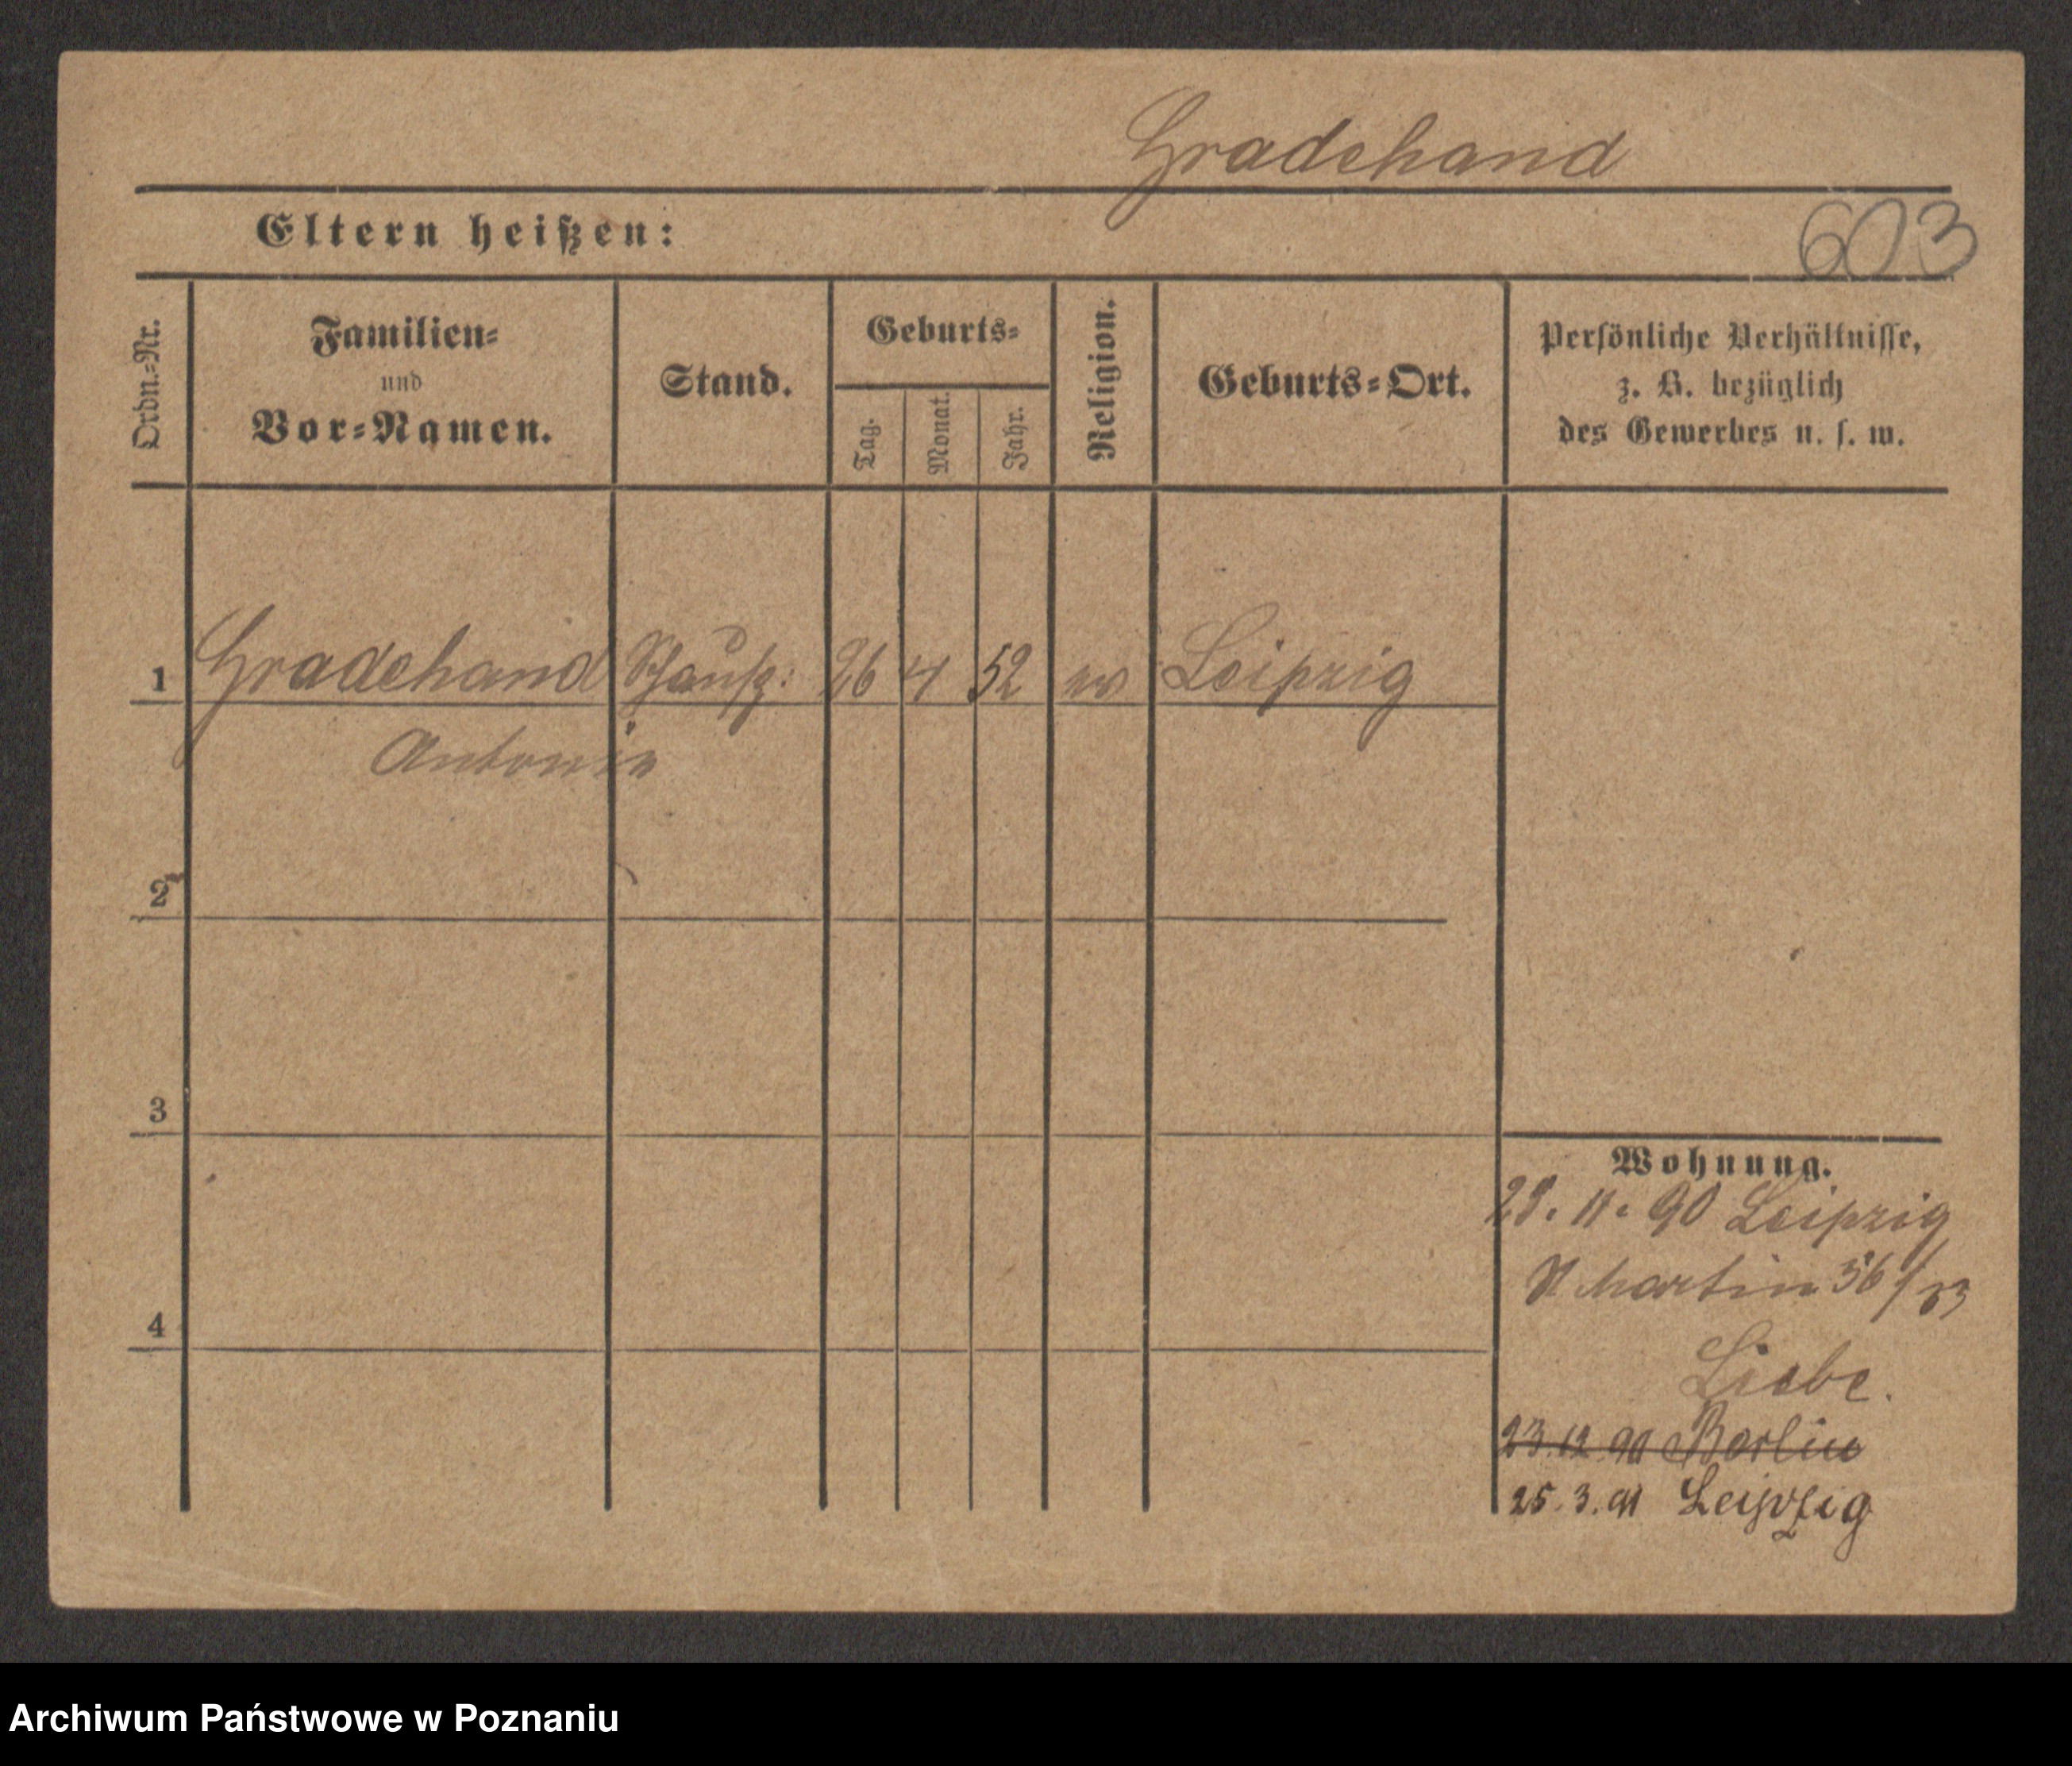 Gradehand
Eltern heißen:
603
Ordn.-Nr.
Familien-
und
Vor-Namen.
Stand.
Geburts-
Tag.
Monat.
Jahr.
Religion.
Geburts-Ort.
Persönliche Verhältnisse,
z. B. bezüglich
des Gewerbes u. s. w.
1 Gradehand Schausp: 26 4 52 ev Leipzig
Antonie
2
3
Wohnung.
28. 11. 90 Leipzig
St Martin 56/
4
Liebe.
23. 12. 90 Berlin
25. 3. 91 Leipzig
Archiwum Państwowe w Poznaniu